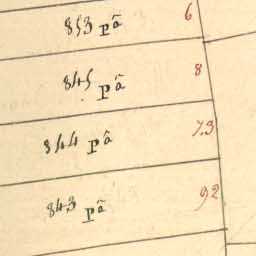 853 pâ 6
845 pâ 8
844 pâ 73
843 pâ 92